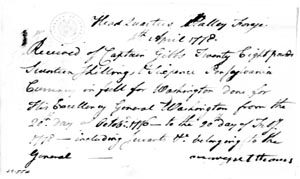 Head Quarters Valley Forge
April 1778
Received of Captain Gibbs Twenty Eight pounds
Seventeen Shillings & Sixpence Pensylvania
Currency in full for Washington Done for
His Excellency General Washington from the
20th day of October 1776 to the 20th day of
1778 - including belonging to the
General